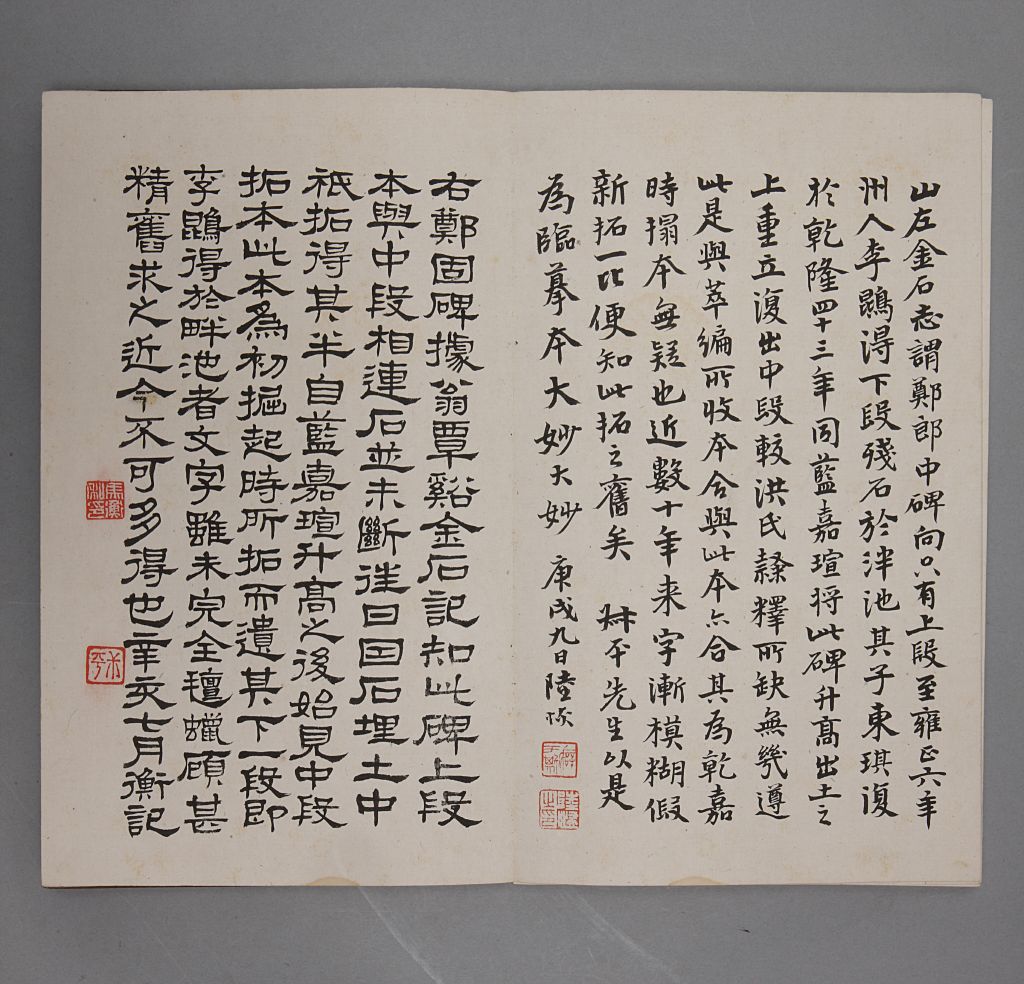 山左金石志謂鄭郎中碑向只有上段至雍正六年
州人李鵾得下段殘石於泮池其子東琪復
於乾隆四十三年同藍嘉瑄將此碑升高出土之
上重立復出中段較洪氏隸釋所缺無幾遵
此是與萃編所收本合與此本亦合其為乾嘉
時搨本無疑也近數十年来字漸模糊假
新拓一比便知此拓之舊矣 尗平先生以是
為臨摹本大妙大妙 庚戌九日陸恢
右鄭固碑據翁覃谿金石記知此碑上段
本與中段相連石並未斷往日因石埋土中
祇拓得其半自藍嘉瑄升高之後始見中段
拓本此本為初掘起時所拓而遺其下一段即
李鵾得於畔池者文字雖未完全氊蠟頗甚
精舊求之近今不可多得也辛亥七月衡記